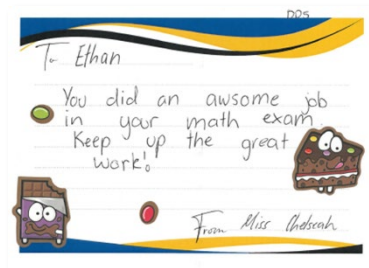 DDS
To Ethan
You did an awsome job
in your math exam.
Keep up the great
work!
From Miss Chelseah